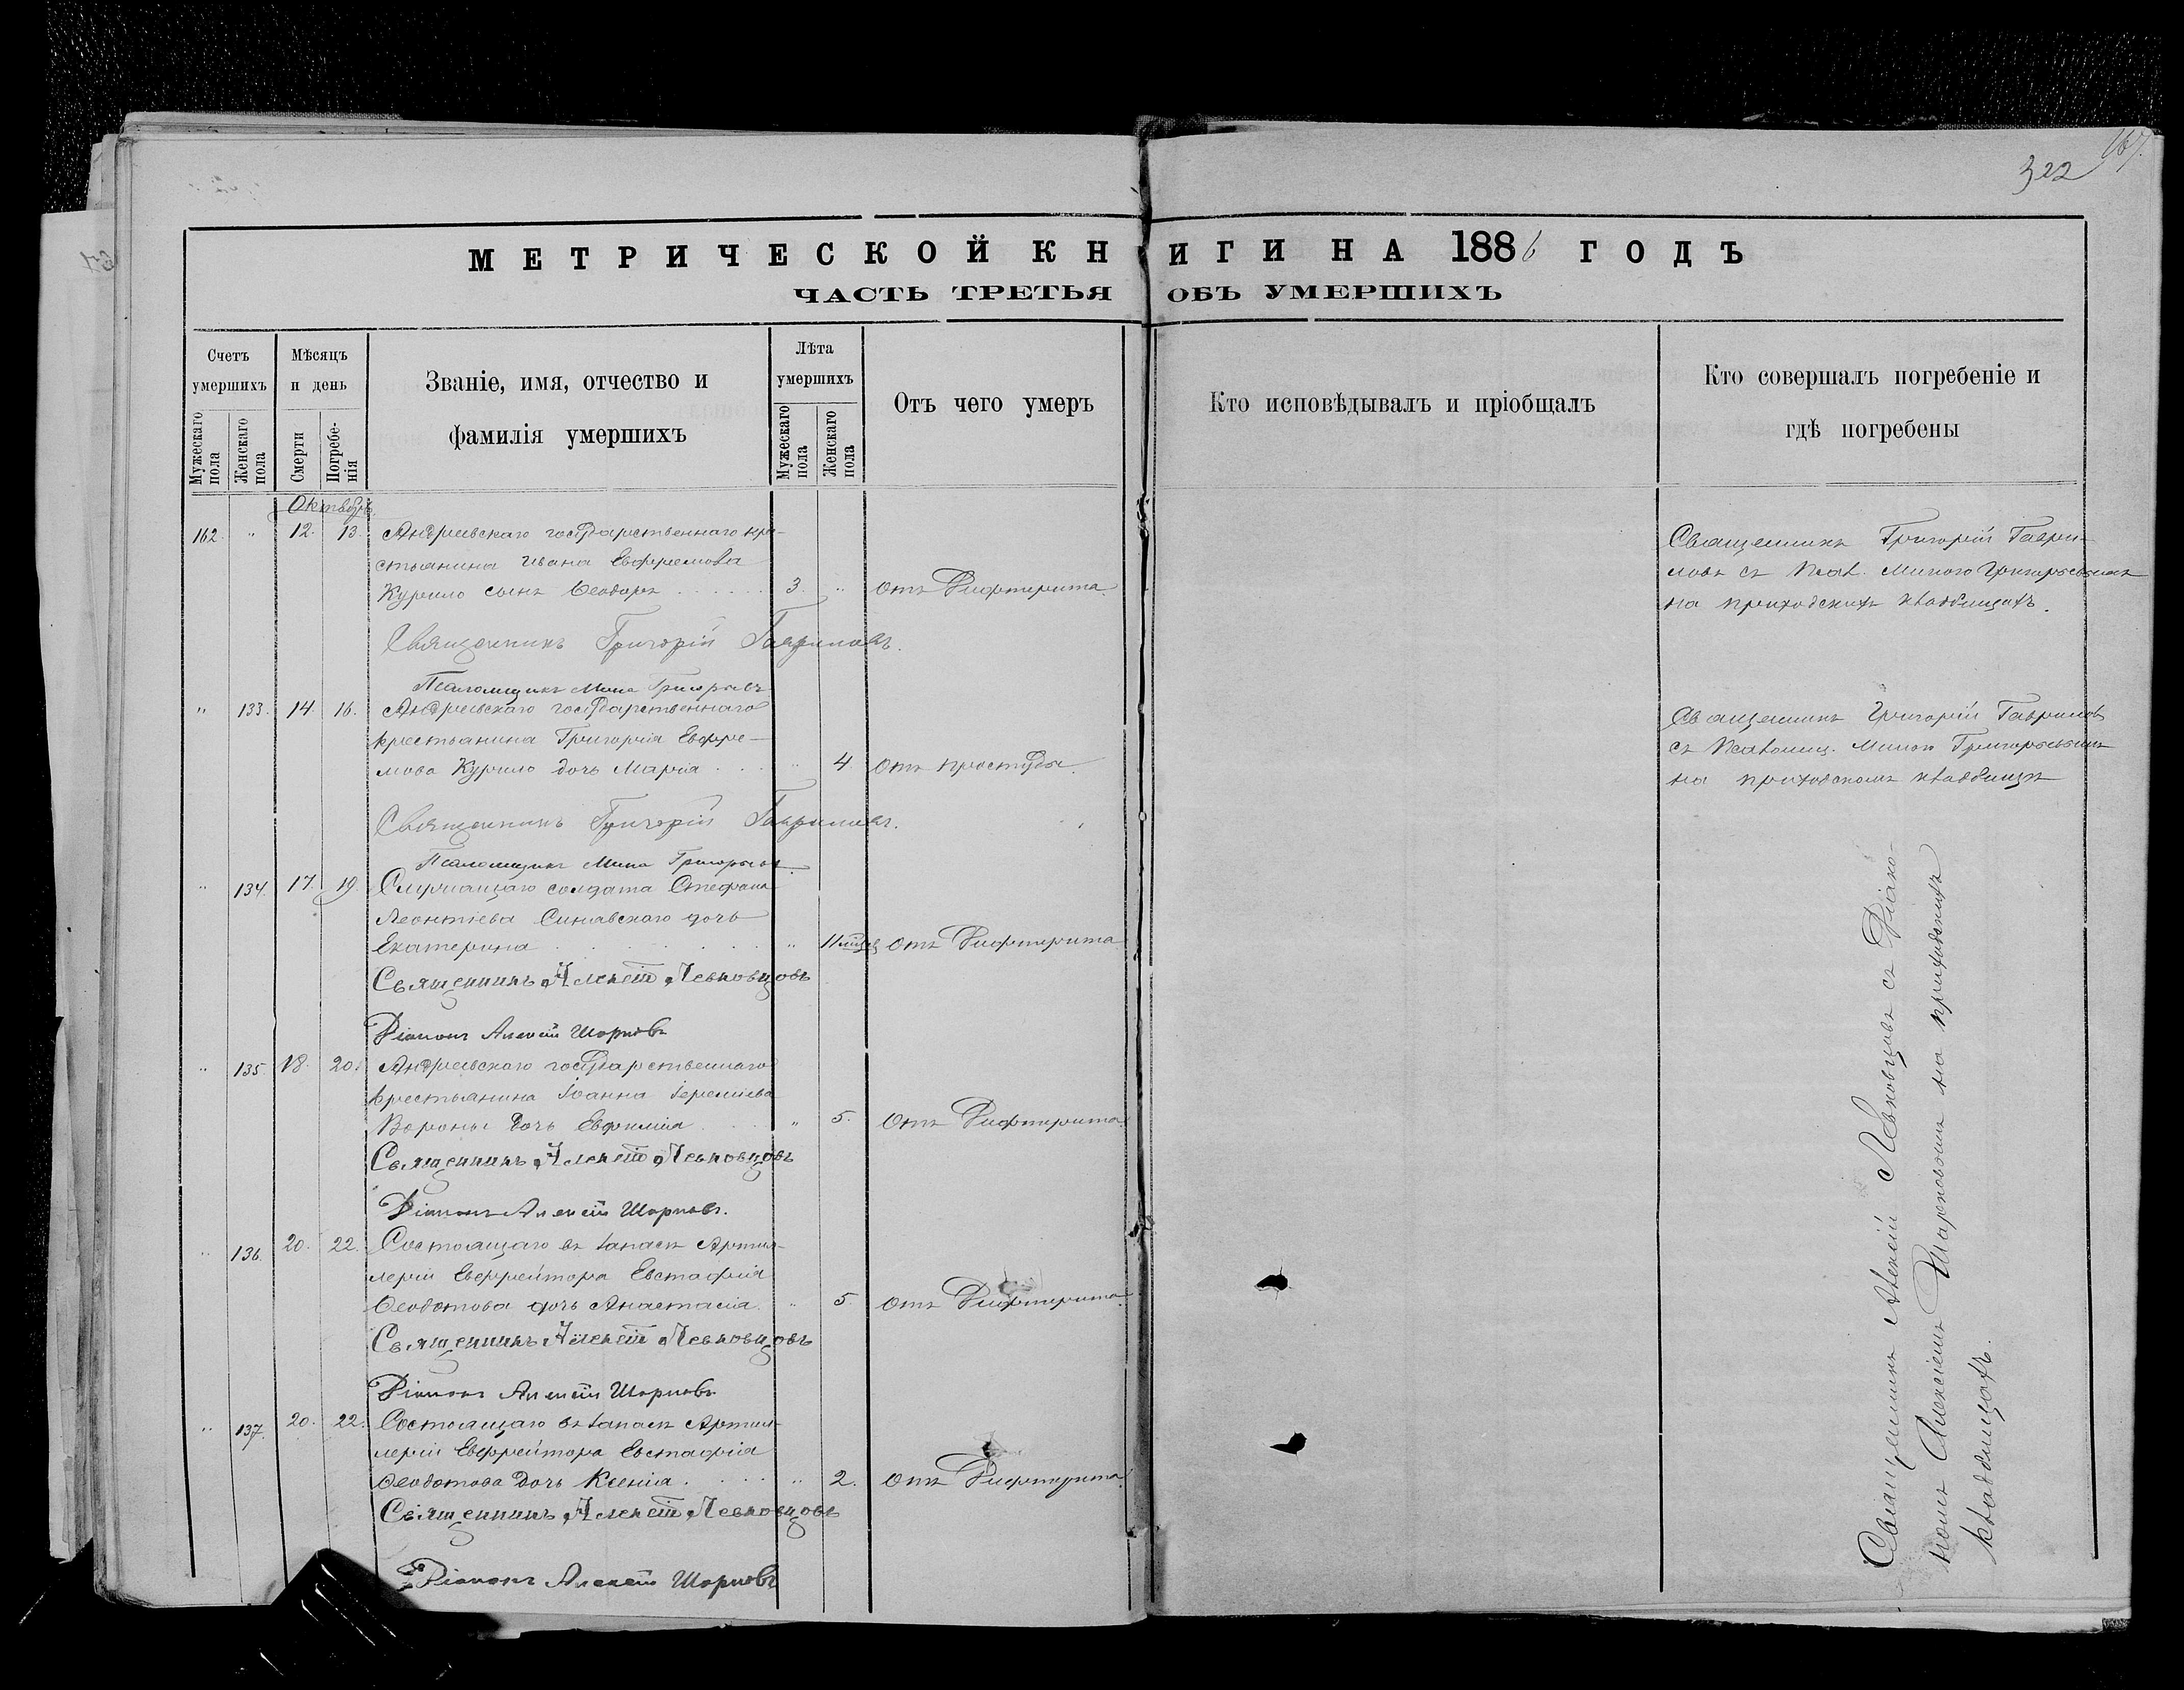 322
167.
МЕТРИЧЕСКОЙ КНИГИ НА 1886 ГОДЪ
ЧАСТЬ ТРЕТЬЯ ОБЪ УМЕРШИХЪ
Счетъ умершихъ
Мужескаго пола
Женскаго пола
Мѣсяцъ и день
Смерти
Погребенія
Званіе, имя, отчество и
фамилія умершихъ
Лѣта умершихъ
Мужескаго пола
Женскаго пола
Отъ чего умеръ
Кто исповѣдывалъ и пріобщалъ
Кто совершалъ погребеніе и
гдѣ погребены
Октябрь
162. " 12. 13. Андреевскаго государственнаго кре-
стьянина Ивана Евфремова
Курило сынъ Ѳеодоръ 3. " отъ Дифтерита
Священникъ Григорій Гаври-
ловъ съ Псал. Миною Григорьевымъ
на приходскихъ кладбищахъ.
Священникъ Григорій Гавриловъ.
Псаломщикъ Мина Григорьевъ
" 133. 14. 16. Андреевскаго государственнаго
крестьянина Григорія Евфре-
мова Курило дочь Марія " 4. отъ простуды.
Священникъ Григорій Гавриловъ
съ Псаломщ. Миною Григорьевымъ
на приходскомъ кладбищѣ
Священникъ Григорій Гавриловъ.
Псаломщикъ Мина Григорьевъ.
" 134. 17. 19. Служащаго солдата Стефана
Леонтіева Синявскаго дочь
Екатерина " 11 мѣсяц отъ Дифтерита
Священникъ Алексѣй Левковцовъ
Діаконъ Алексѣй Шорковъ
" 135. 18. 20. Андреевскаго государственнаго
крестьянина Іоанна Іереміева
Вороны дочь Евфимія " 5. отъ Дифтерита
Священникъ Алексѣй Левковцовъ
Діаконъ Алексѣй Шорковъ.
" 136. 20. 22. Состоящаго въ запасѣ Артил-
леріи Евфрейтора Евстафія
Ѳеодотова дочь Анастасія " 5. отъ Дифтерита.
Священникъ Алексѣй Левковцовъ
Діаконъ Алексѣй Шорковъ
" 137. 20. 22. Состоящаго въ запасѣ Артил-
леріи Евфрейтора Евстафія
Ѳеодотова дочь Ксенія " 2. отъ Дифтерита.
Священникъ Алексѣй Левковцовъ
Діаконъ Алексѣй Шорковъ
Священникъ Алексій Левковцовъ съ Діако-
номъ Алексіемъ Шорковымъ на приходскихъ
кладбищахъ.